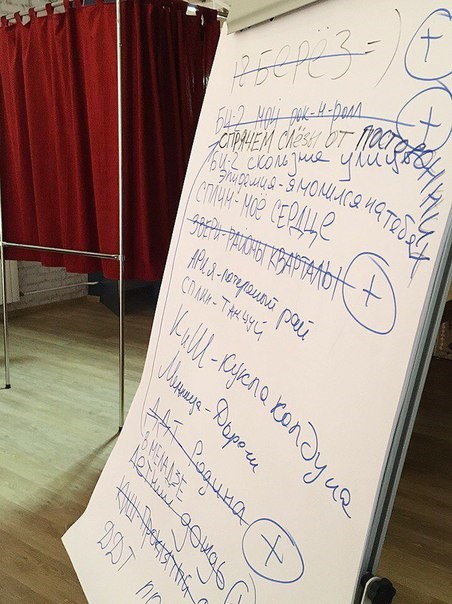 18 БЕРЁЗ =) +
БИ-2 МОЙ рок-н-ролл +
СПРЯЧЕМ СЛЁЗЫ ОТ ПОСТОРОННИХ
БИ-2 скользкие улицы
Эпидемия-я молился на тебя
СПЛИН-МОЁ СЕРДЦЕ
ЗВЕРИ-РАЙОНЫ КВАРТАЛЫ +
АРИЯ-потерянный рай
СПЛИН-ТАНЦУЙ
КиШ-Кукла колдуна
Мельница-Дороги
ДДТ Родина +
Я МЕЛАДЗЕ
дождь +
КИШ-ПРОКЛЯТЫЙ
ДДТ